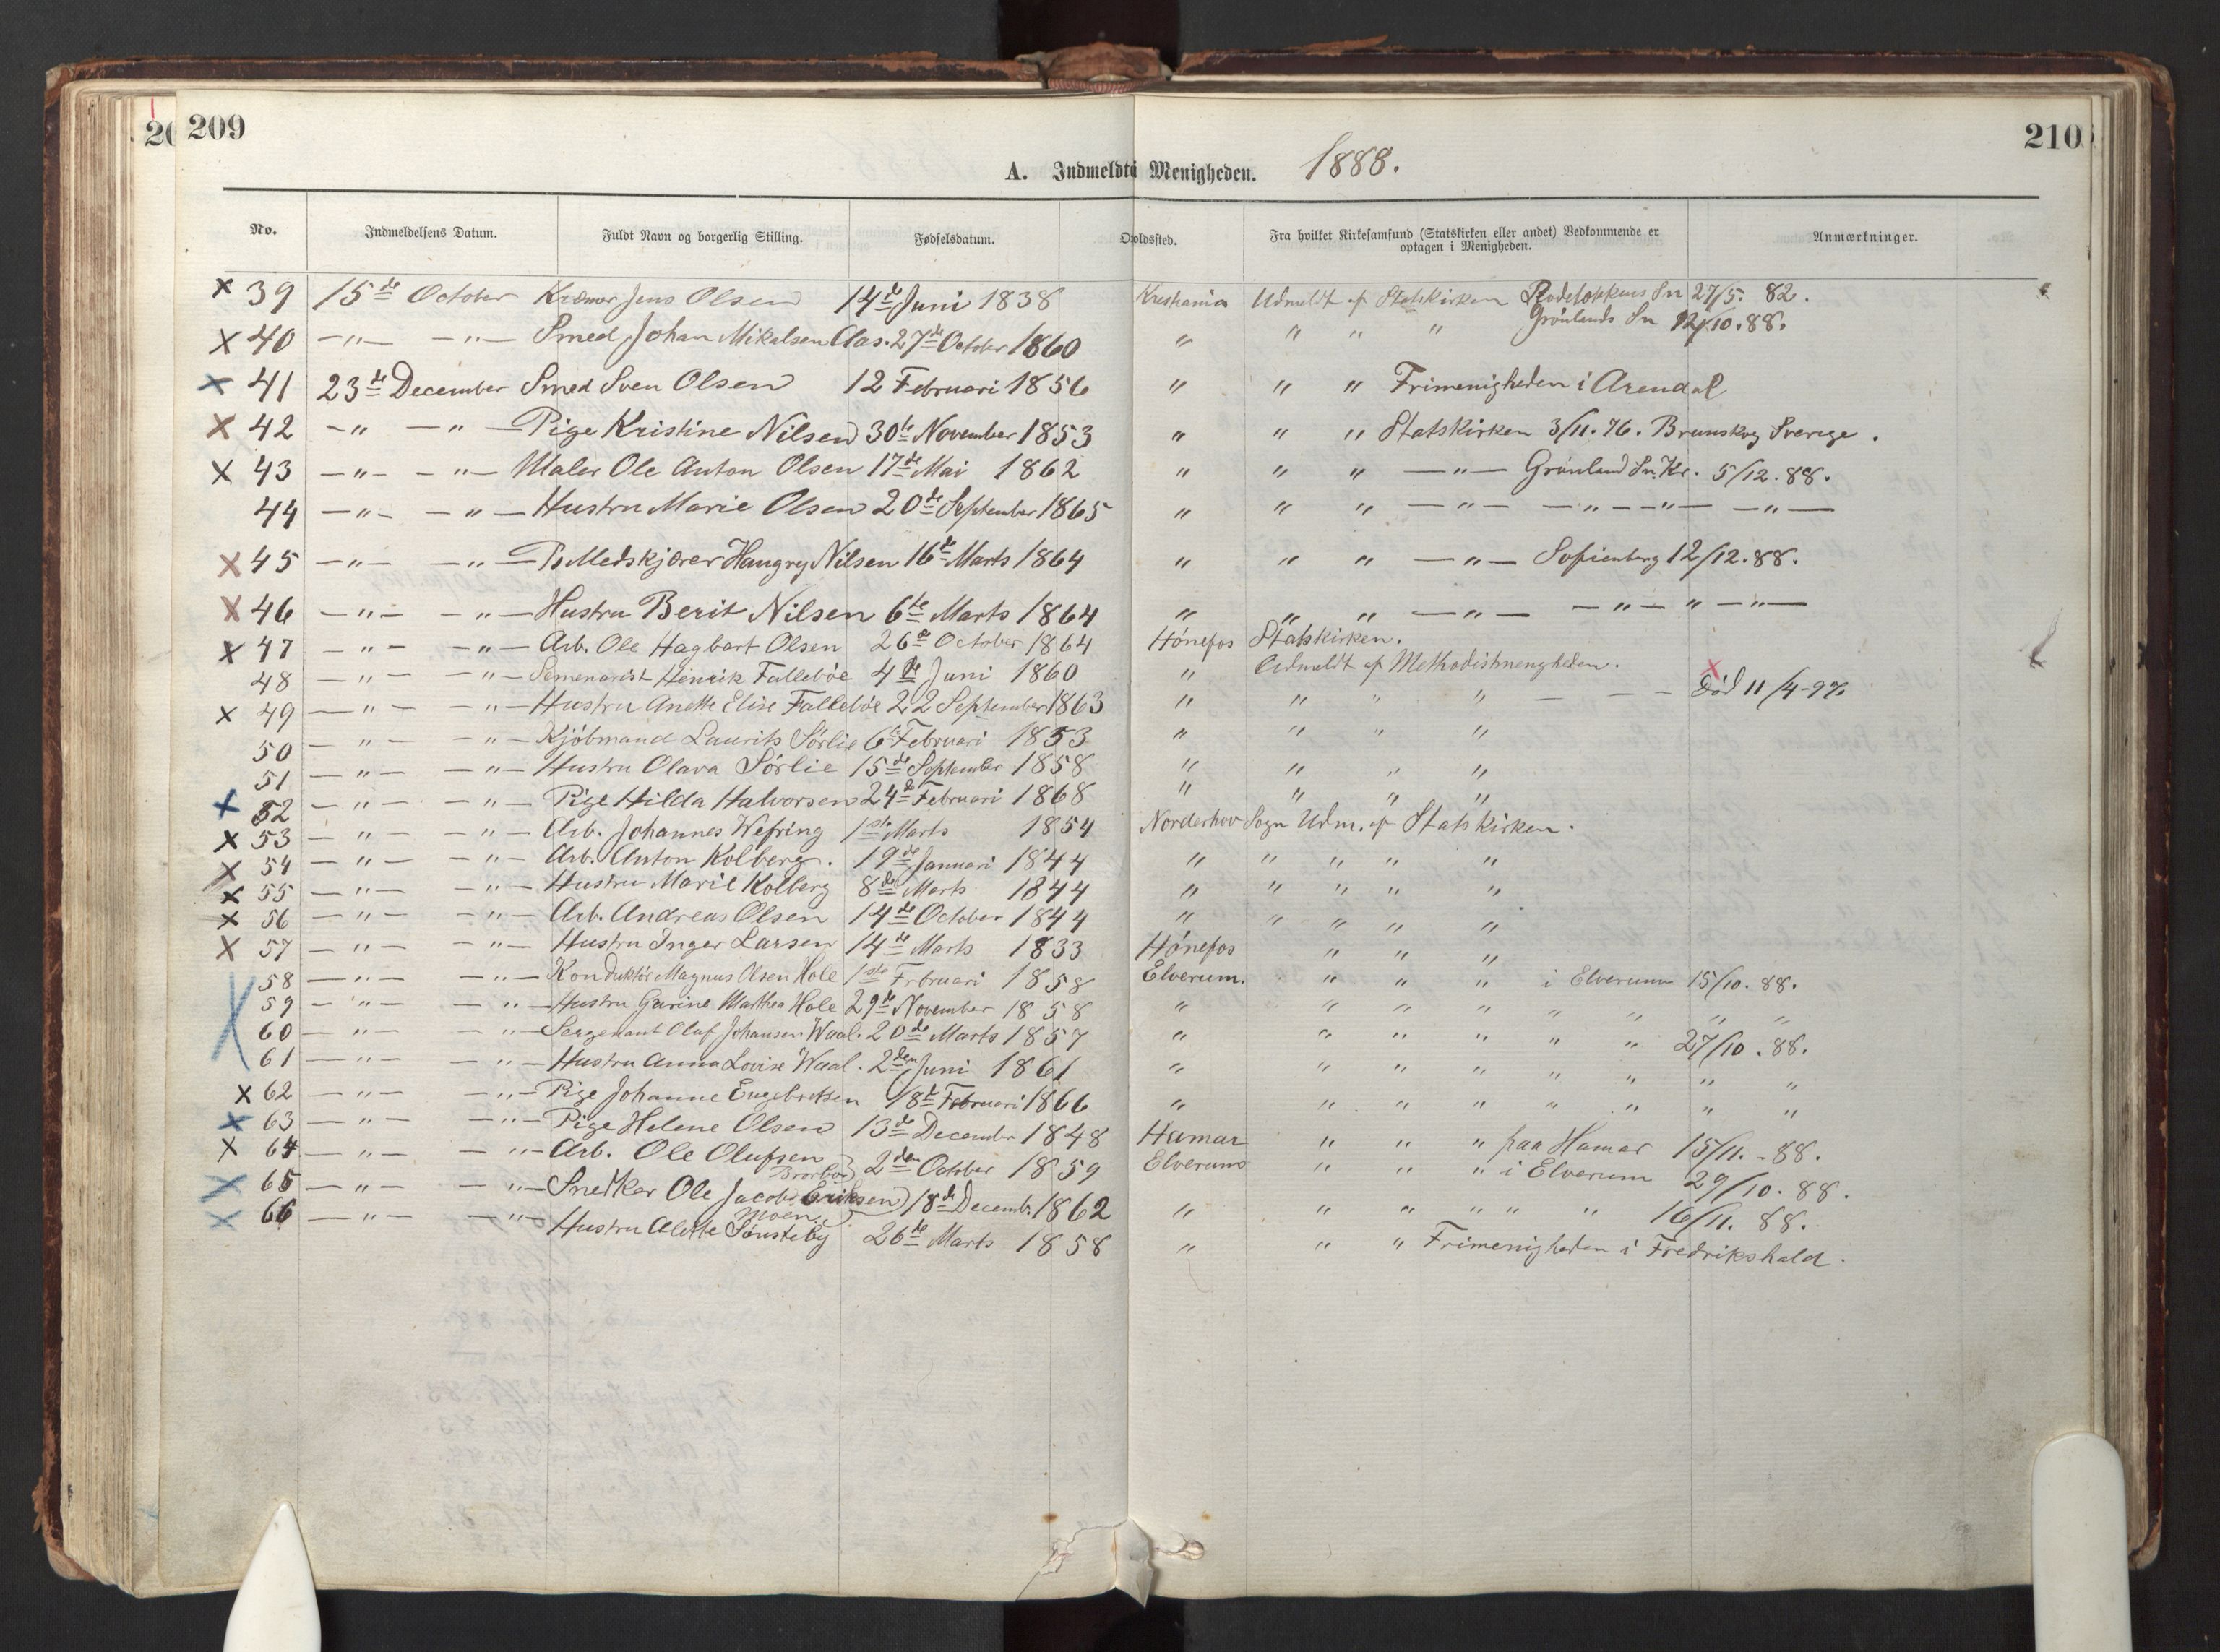 209
210
A. Indmeldte i Menigheden. 1888.
No. Indmeldelsens Datum. Fuldt Navn og borgerlig Stilling. Fødselsdatum. Opholdssted. Fra hvilket Kirkesamfund (Statskirken eller andet) Vedkommende er optagen i Menigheden. Anmærkninger.
x 39 15de October Kræmer Jens Olsen 14de Juni 1838 Kristiania Udmeldt af Statskirken Rodeløkkens Sn 27/5. 82.
x 40 —"— —"— Smed Johan Mikalsen Aas. 27de October 1860 " " " " Grønlands Sn 12/10. 88.
x 41 23de December Smed Sven Olsen 12 Februari 1856 " " " Frimenigheden i Arendal
x 42 —"— —"— Pige Kristine Nilsen 30te November 1853 " " " Statskirken 3/11. 76. Brunskog Sverige.
x 43 —"— —"— Maler Ole Anton Olsen 17de Mai 1862 " " " —"— Grønland Sn. Kr. 5/12. 88.
44 —"— —"— Hustru Marie Olsen 20de September 1865 " " " —"— —"— —"— —"—
x 45 —"— —"— Nilsen 16de Marts 1864 " " " —"— Sofienberg 12/12. 88.
x 46 —"— —"— Hustru Berit Nilsen 6te Marts 1864 " " " —"— —"— " —"—
x 47 —"— —"— Arb. Ole Hagbart Olsen 26de October 1864 Hønefos Statskirken.
48 —"— —"— Semenarist Henrik Falleböe 4de Juni 1860 " Udmeldt af Methodistmenigheden.
x 49 —"— —"— Hustru Anette Elise Falleböe 22 September 1863 " " " " — — — x Död 11/4-97
50 —"— —"— Kjøbmand Laurits Sørlie 6te Februari 1853 " " " "
51 —"— —"— Hustru Olava Sørlie 15de September 1858 " " " "
x 52 —"— —"— Pige Hilda Halvorsen 24de Februari 1868 " " " "
x 53 —"— —"— Arb. Johannes Wefring 1ste Marts 1854 Norderhov Sogn Udm. af Statskirken.
x 54 —"— —"— Arb. Anton Kolberg. 19de Januari 1844 " " " " "
x 55 —"— —"— Hustru Marie Kolberg 8de Marts 1844 " " " " "
x 56 —"— —"— Arb. Andreas Olsen 14de October 1844 " " " " "
x 57 —"— —"— Hustru Inger Larsen 14de Marts 1833 Hønefos " " "
58 —"— —"— Konduktör Magnus Olsen Hole 1ste Februari 1858 Elverum. " " " i Elverum 15/10. 88.
59 —"— "— Hustru Gurine Marthea Hole 29de November 1858 " " " " " " " "
60 —"— "— Sergeant Oluf Johansen Waal. 20de Marts 1857 " " " " " " 27/10. 88.
61 —"— "— Hustru Anna Lovise Waal. 2den Juni 1861 " " " " " " " "
x 62 —"— —"— Pige Johanne Engebretsen 18de Februari 1866 " " " " " " " "
x 63 —"— —"— Pige Helene Olsen 13de December 1848 Hamar " " " paa Hamar 15/11. - 88.
x 64 —"— "— Arb. Ole Olufsen 2den October 1859 Elverum " " " i Elverum 29/10. 88.
x 65 —"— "— Snedker Ole Jacob Eriksen 18de Decemb. 1862 " " " " " " 16/11. 88.
Moen
x 66 —"— —"— Hustru Alette Sønsteby 26de Marts 1858 " " " Frimenigheden i Fredrikshald.